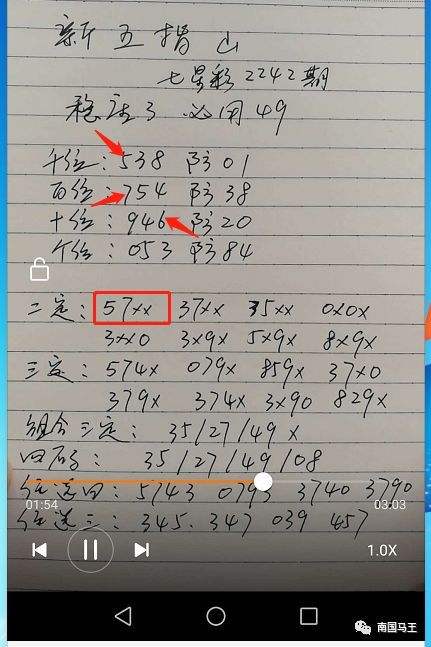 新五指山
七星彩2242期
稳庄3 必用49
千位:538 防01
百位:754 防38
十位:946 防20
个位:053 防84
二定:57xx 37xx 35xx 0x0x
3xx0 3x9x 5x9x 8x9x
三定:574x 079x 859x 37x0
379x 374x 3x90 829x
组合三定:35/27/49x
四码:35/27/49/08
任选四:5743 0793 3740 3790
01:54
03:03
任选三:345. 347 039 457
1.0X
南国马王